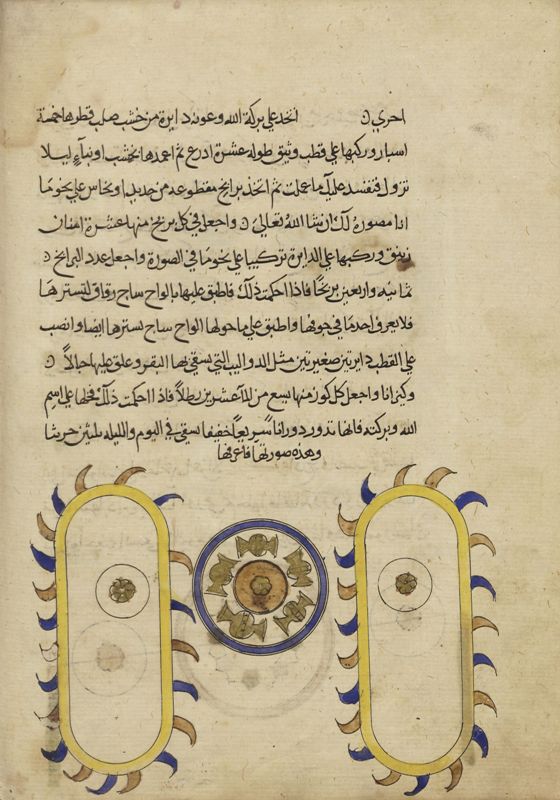 اخرى اتخذ على بركة الله وعونه دايرة من خشب صلب قطرها خمسة
اسبار وركبها على قطب وثيق طوله عشرة ادرع ثم اعمدها بخشب او بناء ليلا
تزول فتفسد عليك ما عملت ثم اتخذ برابخ مقطوعه من حديد او نحاس على نحو ما
انا مصوره لك ان شا الله تعالى واجعل في كل بربخ منها عشرة امنان
زيبق وركبها على الدايرة تركيبا على نحو ما في الصورة واجعل عدد البرابخ
ثمانيه واربعين بربخا فاذا احكمت ذلك فاطبق عليها بالواح ساج رقاق لتسترها
فلا يعرف احد ما في جوفها واطبق على ما حولها الواح ساج بسترها ايضا وانصب
على القطب دايرتين صغيرتين مثل الدواليب التي يسقى بها البقر وعلق عليها حبالا
وكيزانا واجعل كل كوز منها يسع من الما عشرين رطلا فاذا احكمت ذلك فحلها على اسم
الله وبركته فانها تدور دورانا سريعا خفيفا يسقى في اليوم والليله ثلثين جريبا
وهذه صورتها فاعرفها